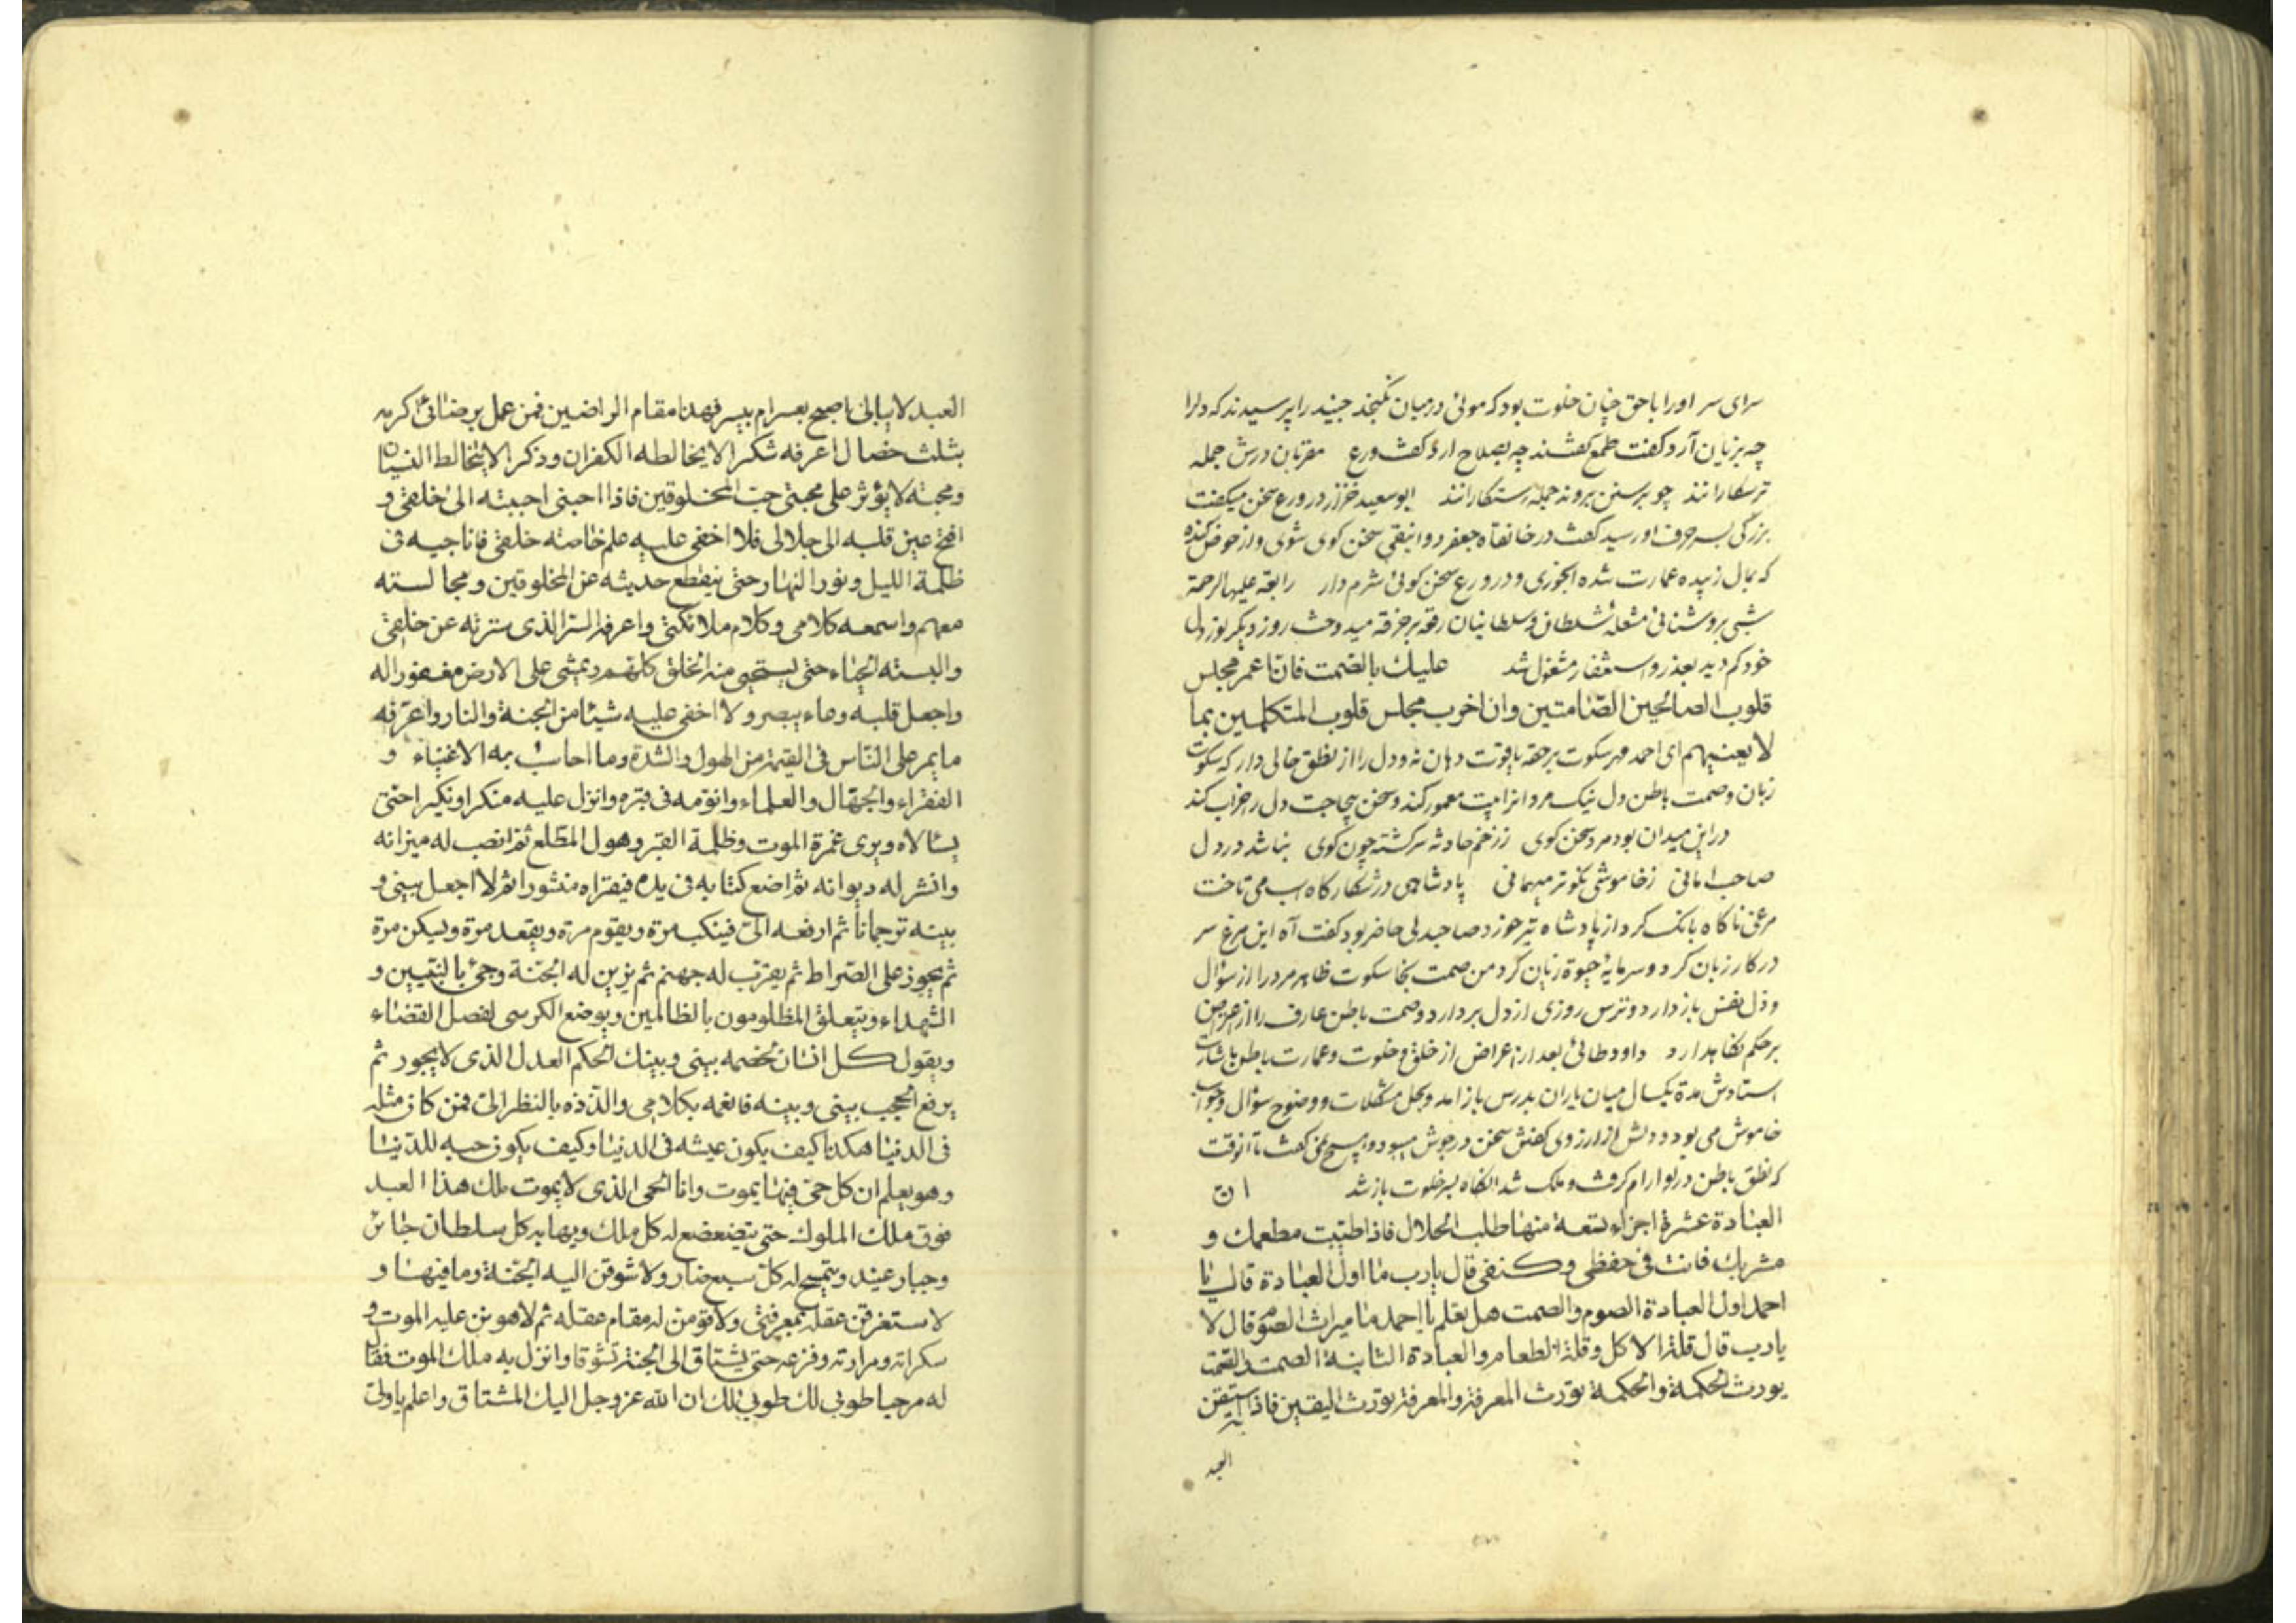 سرای سر او را با حق چنان خلوت بود که موئی در میان نگنجد جنید را پرسیدند که دل را
چه بزیان آرد گفت طمع گفتند چه بصلاح ارد گفت ورع مقربان درش جمله
ترسکارانند چو برسنن بروند جمله رستکارانند ابو سعید خراز در ورع سخن میکفت
بزرگی بسر حرف او رسید گفت در خانقاه جعفر دوانیقی سخن کوی شوی و از حوض کنده
که بمال زبیده عمارت شده آبخوری و در ورع سخن کوئی شرم دار رابعه علیها الرحمة
شبی بروشنائی مشعله شلطان و سلطانیان رقعه بر خرقه میدوخت روز دیکر نور دل
خود کم دید بعذر و استغفار مشغول شد علیك بالصمت فان اعمر مجلس
قلوب الصالحین الصّامتین وان اخرب مجلس قلوب المتکلمین بما
لا یعنیهم ای احمد مهر سکوت بر حقه یاقوت دهان نه و دل را از نطق خالی دار که سکوت
زبان و صمت باطن دل نیک مردانرا بیت معمور کند و سخن بیحاجت دل را خراب کند
در این میدان بود مرد سخن کوی ز زخم حادثه سرکشته چون کوی نباشد در دل
صاحب امانی ز خاموشی نکوتر میهمانی پادشاهی در شکارکاه اسب می تاخت
مرغی ناکاه بانک کرد از پادشاه تیر خورد صاحبدلی حاضر بود گفت آه این مرغ سر
در کار زبان کرد و سرمایهٔ حیوة زیان کرد من صمت نجا سکوت ظاهر مرد را از سؤال
و ذل نفس باز دارد و ترس روزی از دل بردارد و صمت باطن عارف را از اعراض
بر حکم نکاهدارد داود طائی بعد از اعراض از خلق و خلوت و عمارت باطن باشارت
استادش مدة یکسال میان یاران بدرس باز امد و بحل مشکلات و وضوح سؤال و جواب
خاموش می بود و دلش از ارزوی کفتن سخن در جوش میبود و هیچ نمی کفت تا آنوقت
که نطق باطن در او ارام کرفت و ملک شد انکاه بسر خلوت باز شد ان
العبادة عشرة اجزاء تسعة منها طلب الحلال فاذا طیّبت مطعمك و
مشربك فانت فی حفظی وکنفی قال یارب ما اول العبادة قال یا
احمد اول العبادة الصوم والصمت هل تعلم یا احمد ما میراث الصوم قال لا
یارب قال قلة الاکل وقلة الطعام والعبادة الثانیة الصمت والصمت
یورث الحکمة والحکمة تورث المعرفة والمعرفة تورث الیقین فاذا استیقن
العبد
العبد لا یبالی اصبح بعسر ام بیسر فهذا مقام الراضین فمن عمل برضائی اکرمه
بثلث خصال اعرفه شکرا لا یخالطه الکفران وذکرا لا یخالط النسیان
ومحبة لا یؤثر علی محبتی حبّ المخلوقین فاذا احبنی احببته الی خلقی و
افتح عین قلبه الی جلالی فلا اخفی علیه علم خاصة خلقی فاناجیه فی
ظلمة اللیل ونور النهار حتی ینقطع حدیثه عن المخلوقین ومجالسته
معهم واسمعه کلامی وکلام ملائکتی واعرفه السرّ الذی سترته عن خلقی
والبسته الحیاء حتی یستحیی منه الخلق کلهم ویمشی علی الارض مغفورا له
واجعل قلبه وعاء یبصر ولا اخفی علیه شیئا من الجنة والنار واعرّفه
ما یمر علی النّاس فی القیمة من الهول والشدة وما احاسب به الاغنیاء و
الفقراء والجهّال والعلماء وانوّمه فی قبره وانزل علیه منکرا ونکیرا حتّی
یسئالاه ویری غمرة الموت وظلمة القبر وهول المطّلع ثم انصب له میزانه
وانشر له دیوانه ثم اضع کتابه فی یده فیقراه منشورا ثم لا اجعل بینی و
بینه ترجمانا ثم ارفعه الیّ فینکب مرة ویقوم مرة ویقعد مرة ویسکن مرة
ثم یجوز علی الصّراط ثم یقرّب له جهنم ثم یزین له الجنّة وجئ بالنّبیین و
الشهداء ویتعلق المظلومون بالظالمین ویوضع الکرسی لفصل القضاء
ویقول کل انسان لخصمه بینی وبینك الحکم العدل الذی لا یجور ثم
یرفع الحجب بینی وبینه فانعمه بکلامی والذّذه بالنظر الیّ فمن کان مثله
فی الدنیا هکذا کیف یکون عیشه فی الدنیا وکیف یکون حبه للدّنیا
وهو یعلم ان کل حیّ فیها یموت وانا الحی الذی لا یموت ملك هذا العبد
فوق ملك الملوك حتی یتضعضع له کل ملك ویهابه کل سلطان جائر
وجبار عنید ویتمسح له کلّ سبع ضار ولا شوقن الیه الجنّة وما فیها و
لاستغرقن عقله بمعرفتی ولاقومن له مقام عقله ثم لاهونن علیه الموت و
سکراته ومرارته وفزعه حتی یشتاق الی الجنة تشوقا وانزل به ملك الموت فقال
له مرحبا طوبی لك طوبی لك ان الله عز وجل الیك المشتاق واعلم یا ولیّ